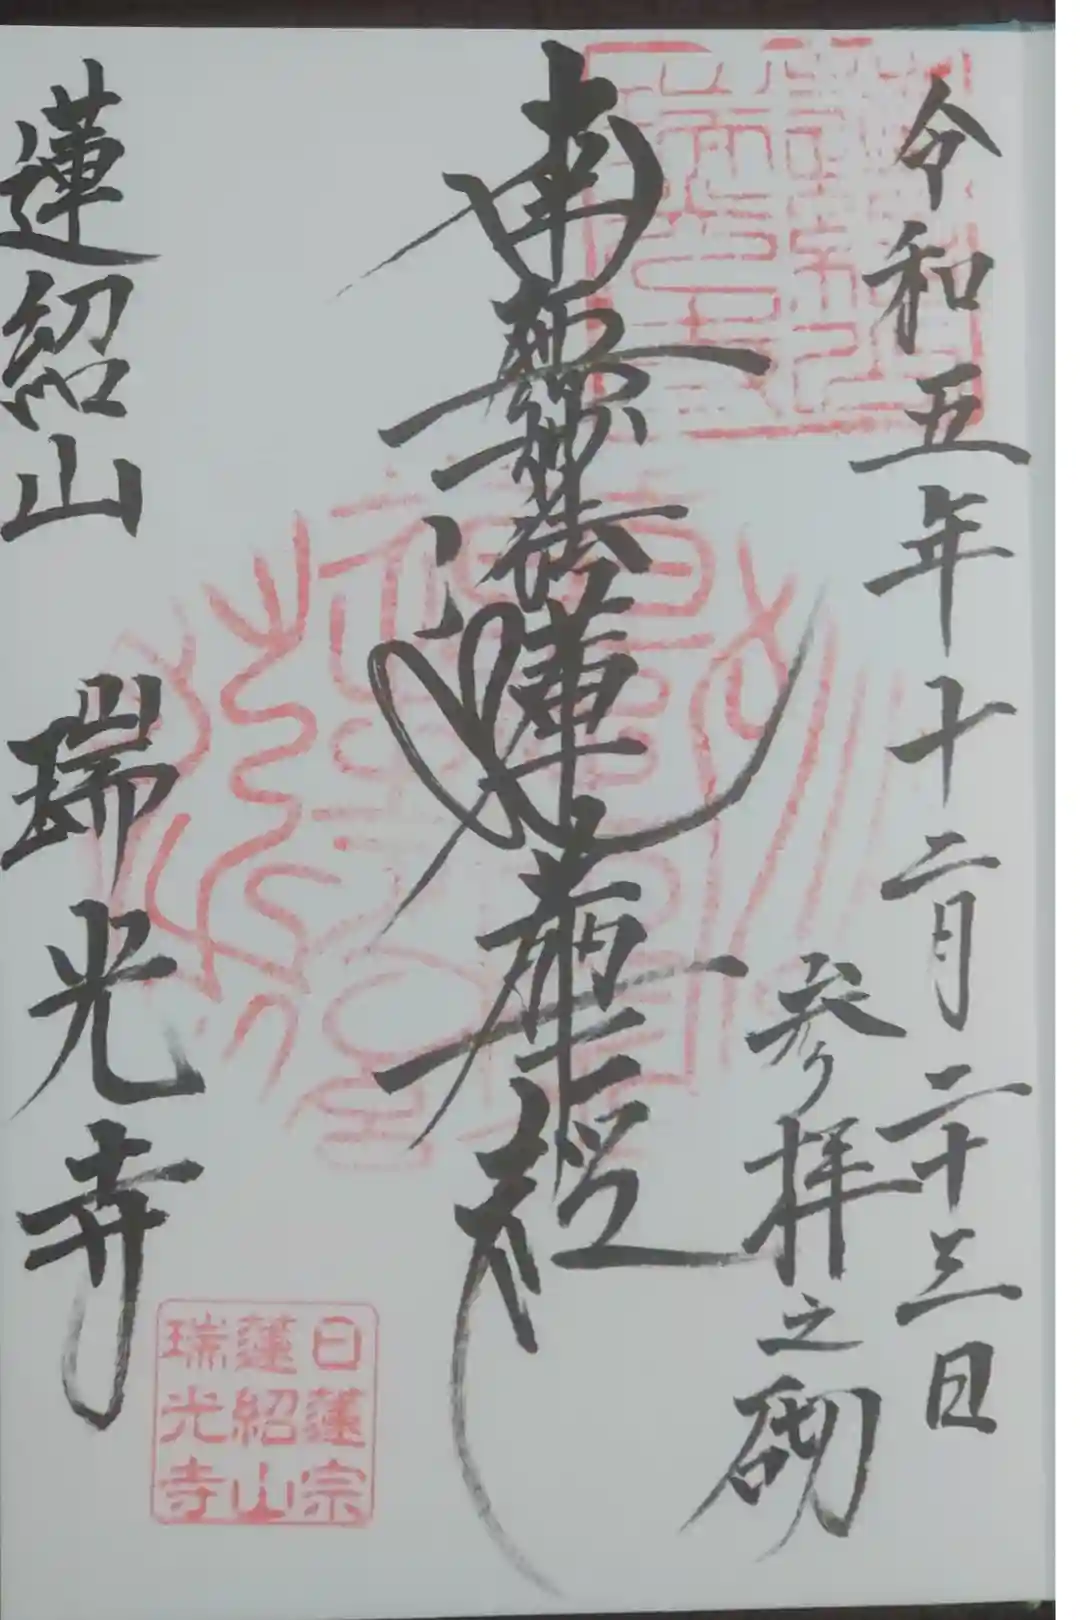 令和五年十二月二十三日
参拝之砌
南無妙法蓮華経
蓮紹山 瑞光寺
日蓮宗
蓮紹山
瑞光寺